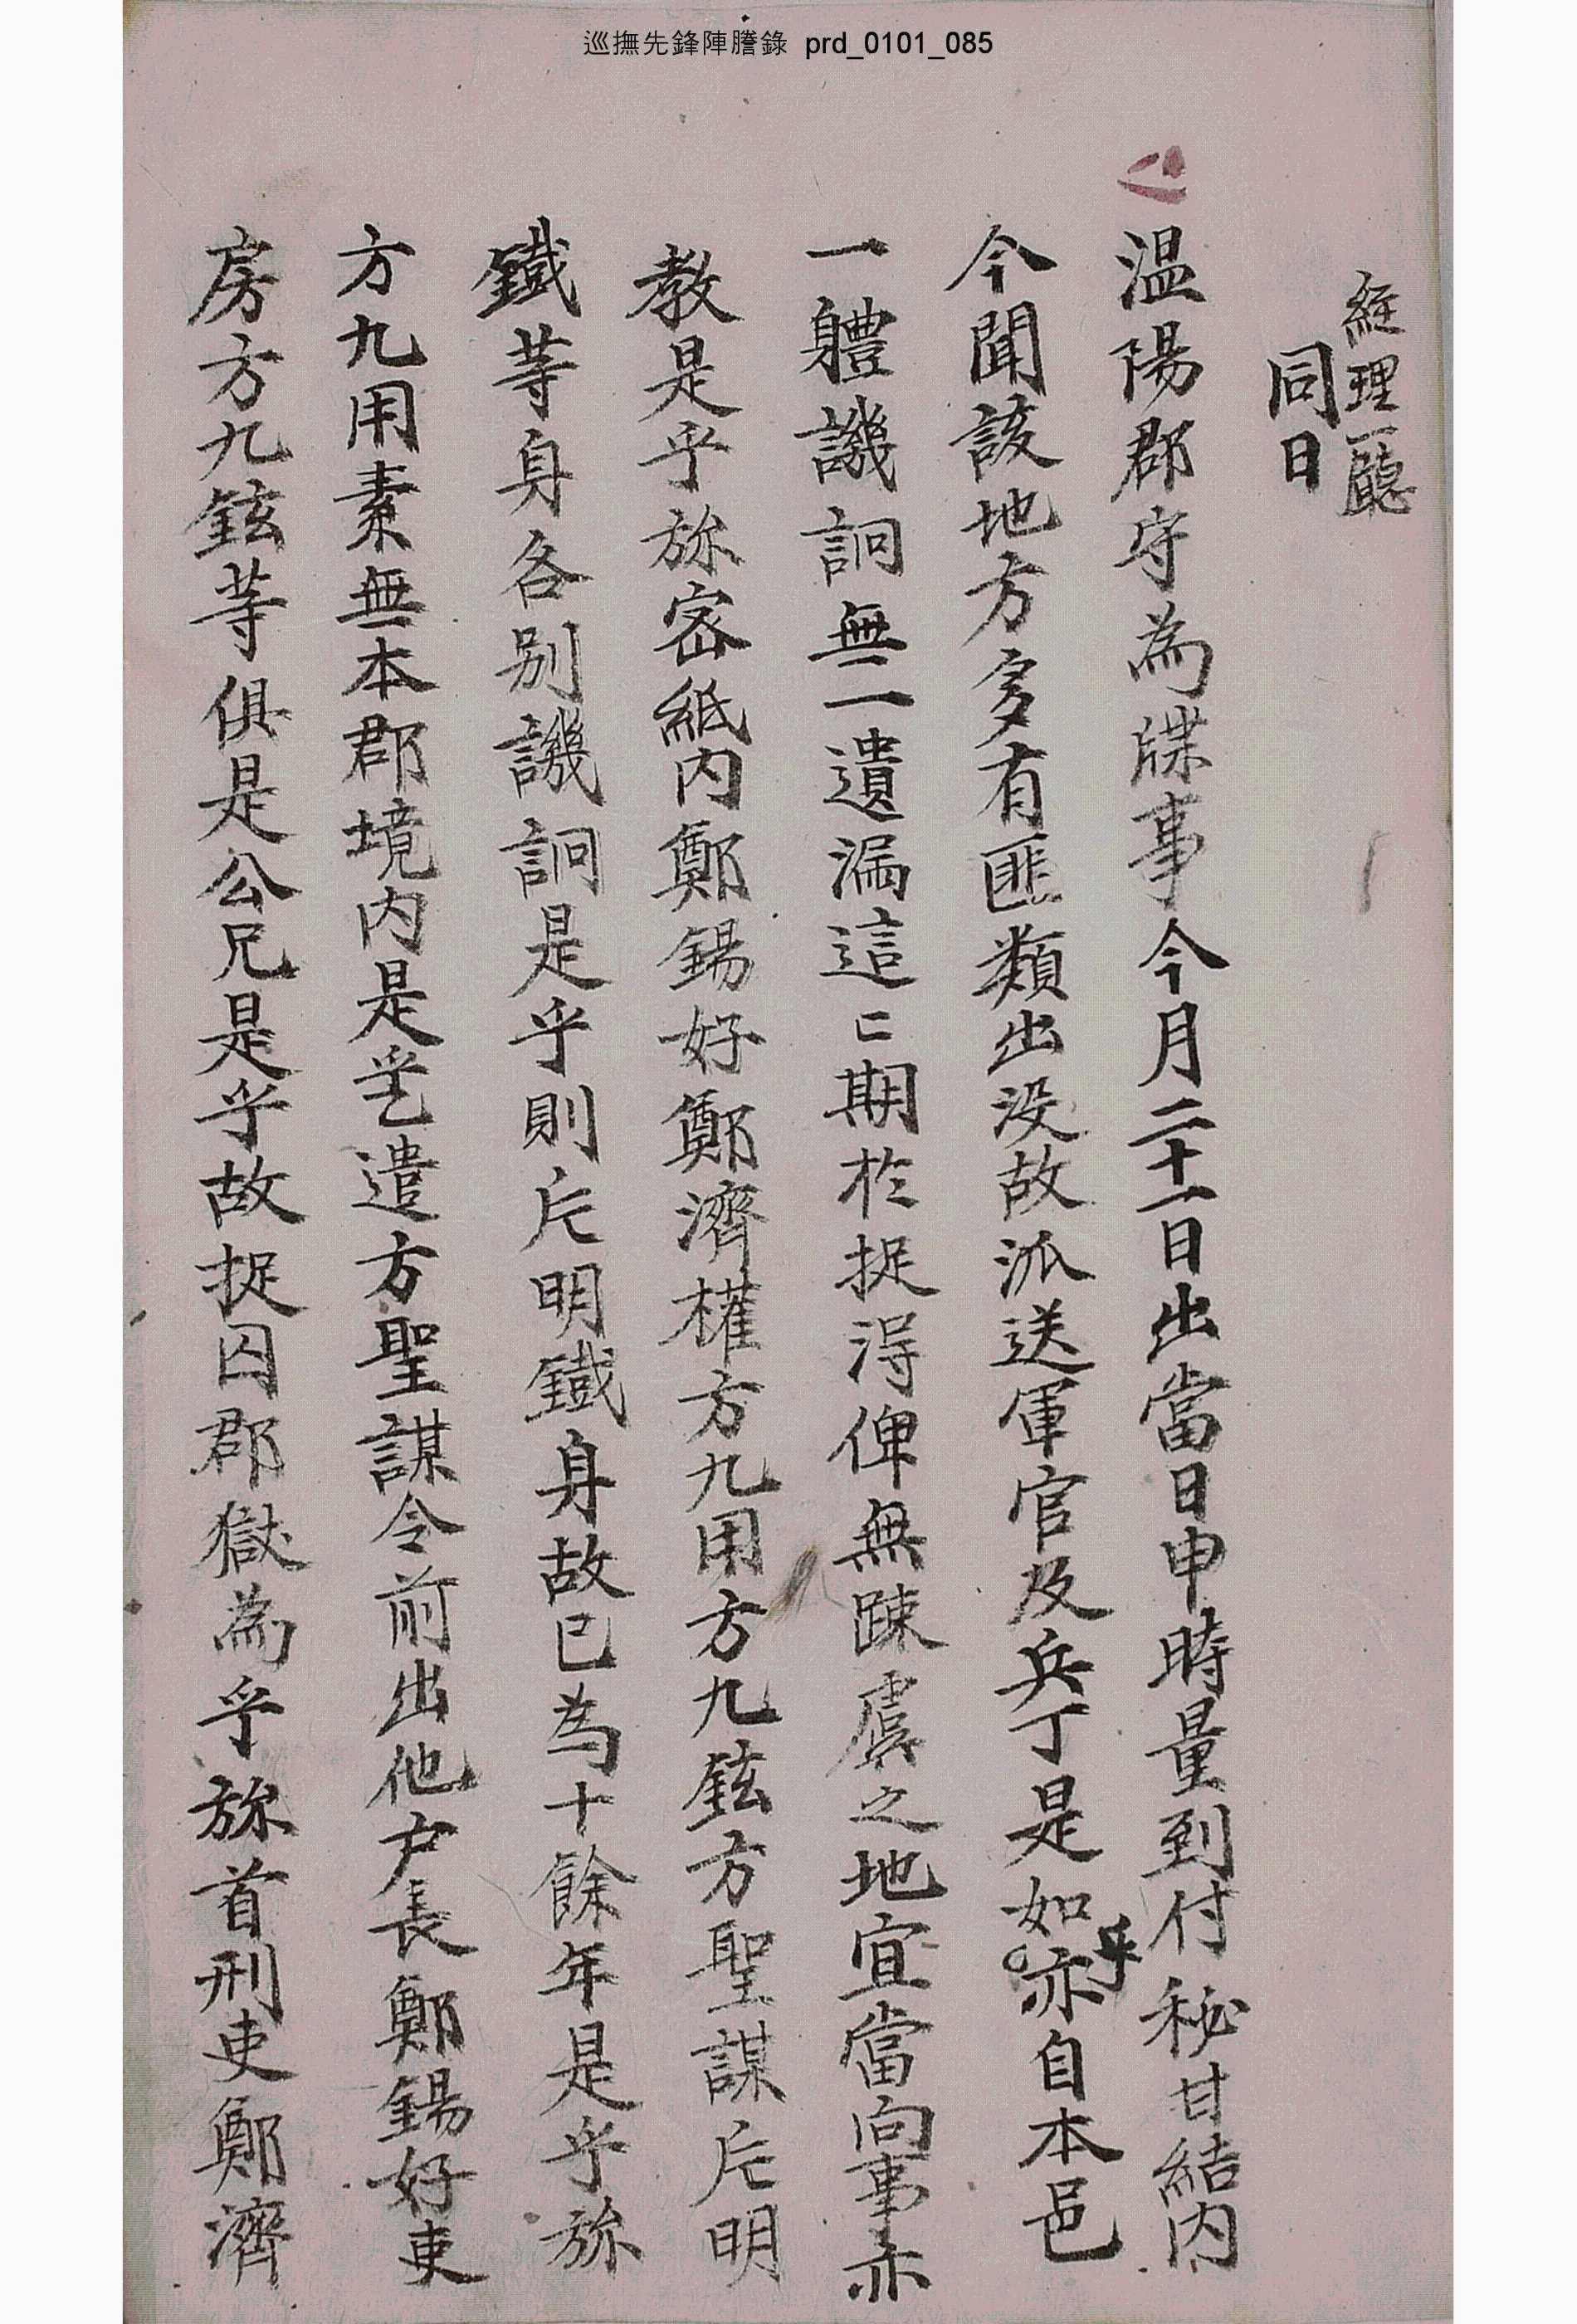 巡撫先鋒陣謄錄 prd_0101_085
經理廳
同日
温陽郡守為牒事今月二十一日出當日申時量到付秘甘結內
今聞該地方多有匪類出没故派送軍官及兵丁是如乎亦自本邑
一軆譏詗無一遺漏這這期於捉得俾無踈虞之地宜當向事亦
教是乎旀密紙內鄭錫好鄭濟權方九用方九鉉方聖謀片明
鐵等身各別譏詗是乎則片明鐵身故已為十餘年是乎旀
方九用素無本郡境內是乎乙遣方聖謀令前出他户長鄭錫好吏
房方九鉉等俱是公兄是乎故捉囚郡獄為乎旀首刑吏鄭濟